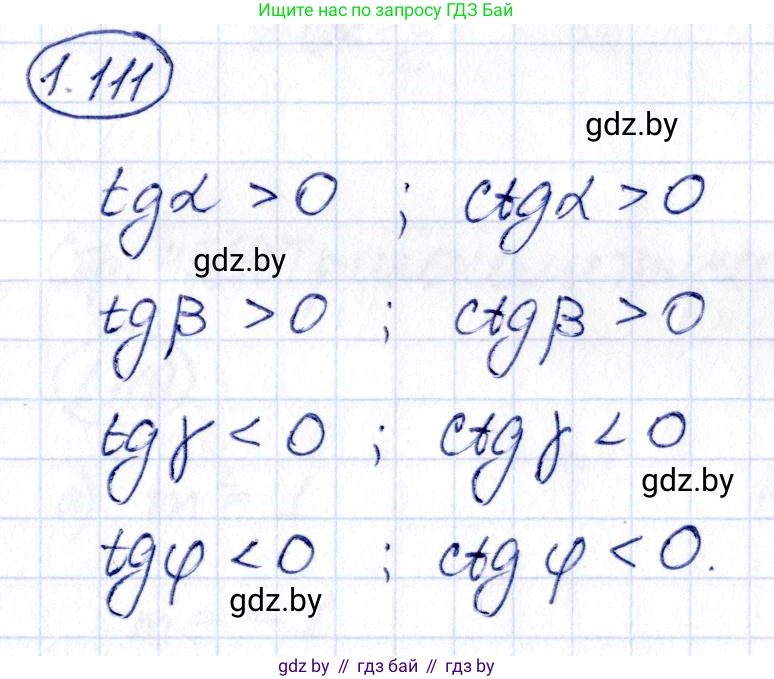 Ищите нас по запросу ГДЗ Бай
1.111
gdz.by
tgα > 0 ; ctgα > 0
gdz.by
tgβ > 0 ; ctgβ > 0
tgγ < 0 ; ctgγ < 0
gdz.by
tgφ < 0 ; ctgφ < 0.
gdz.by
gdz.by // гдз бай // гдз by